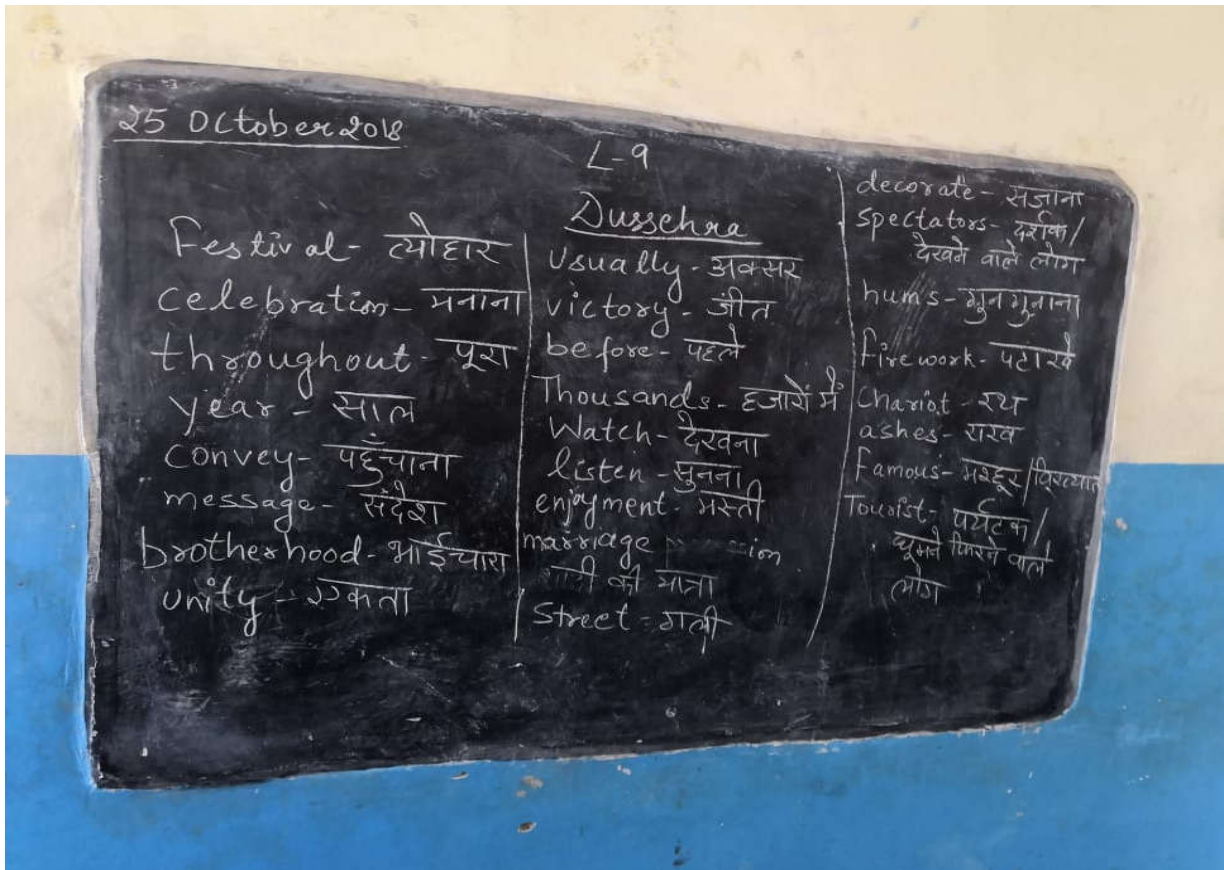 25 October 2018
L-9
Dussehra
Festival - त्योहार
Celebration - मनाना
throughout - पूरा
year - साल
convey - पहुँचाना
message - संदेश
brotherhood - भाईचारा
unity - एकता
Usually - अक्सर
victory - जीत
before - पहले
Thousands - हजारों में
Watch - देखना
listen - सुनना
enjoyment - मस्ती
marriage
की यात्रा
Street - गली
decorate - सजाना
spectators - दर्शक/
देखने वाले लोग
hums - गुनगुनाना
firework - पटाखे
Chariot - रथ
ashes - राख
famous - मशहूर/विख्यात
Tourist - पर्यटक/
घूमने फिरने वाले
लोग